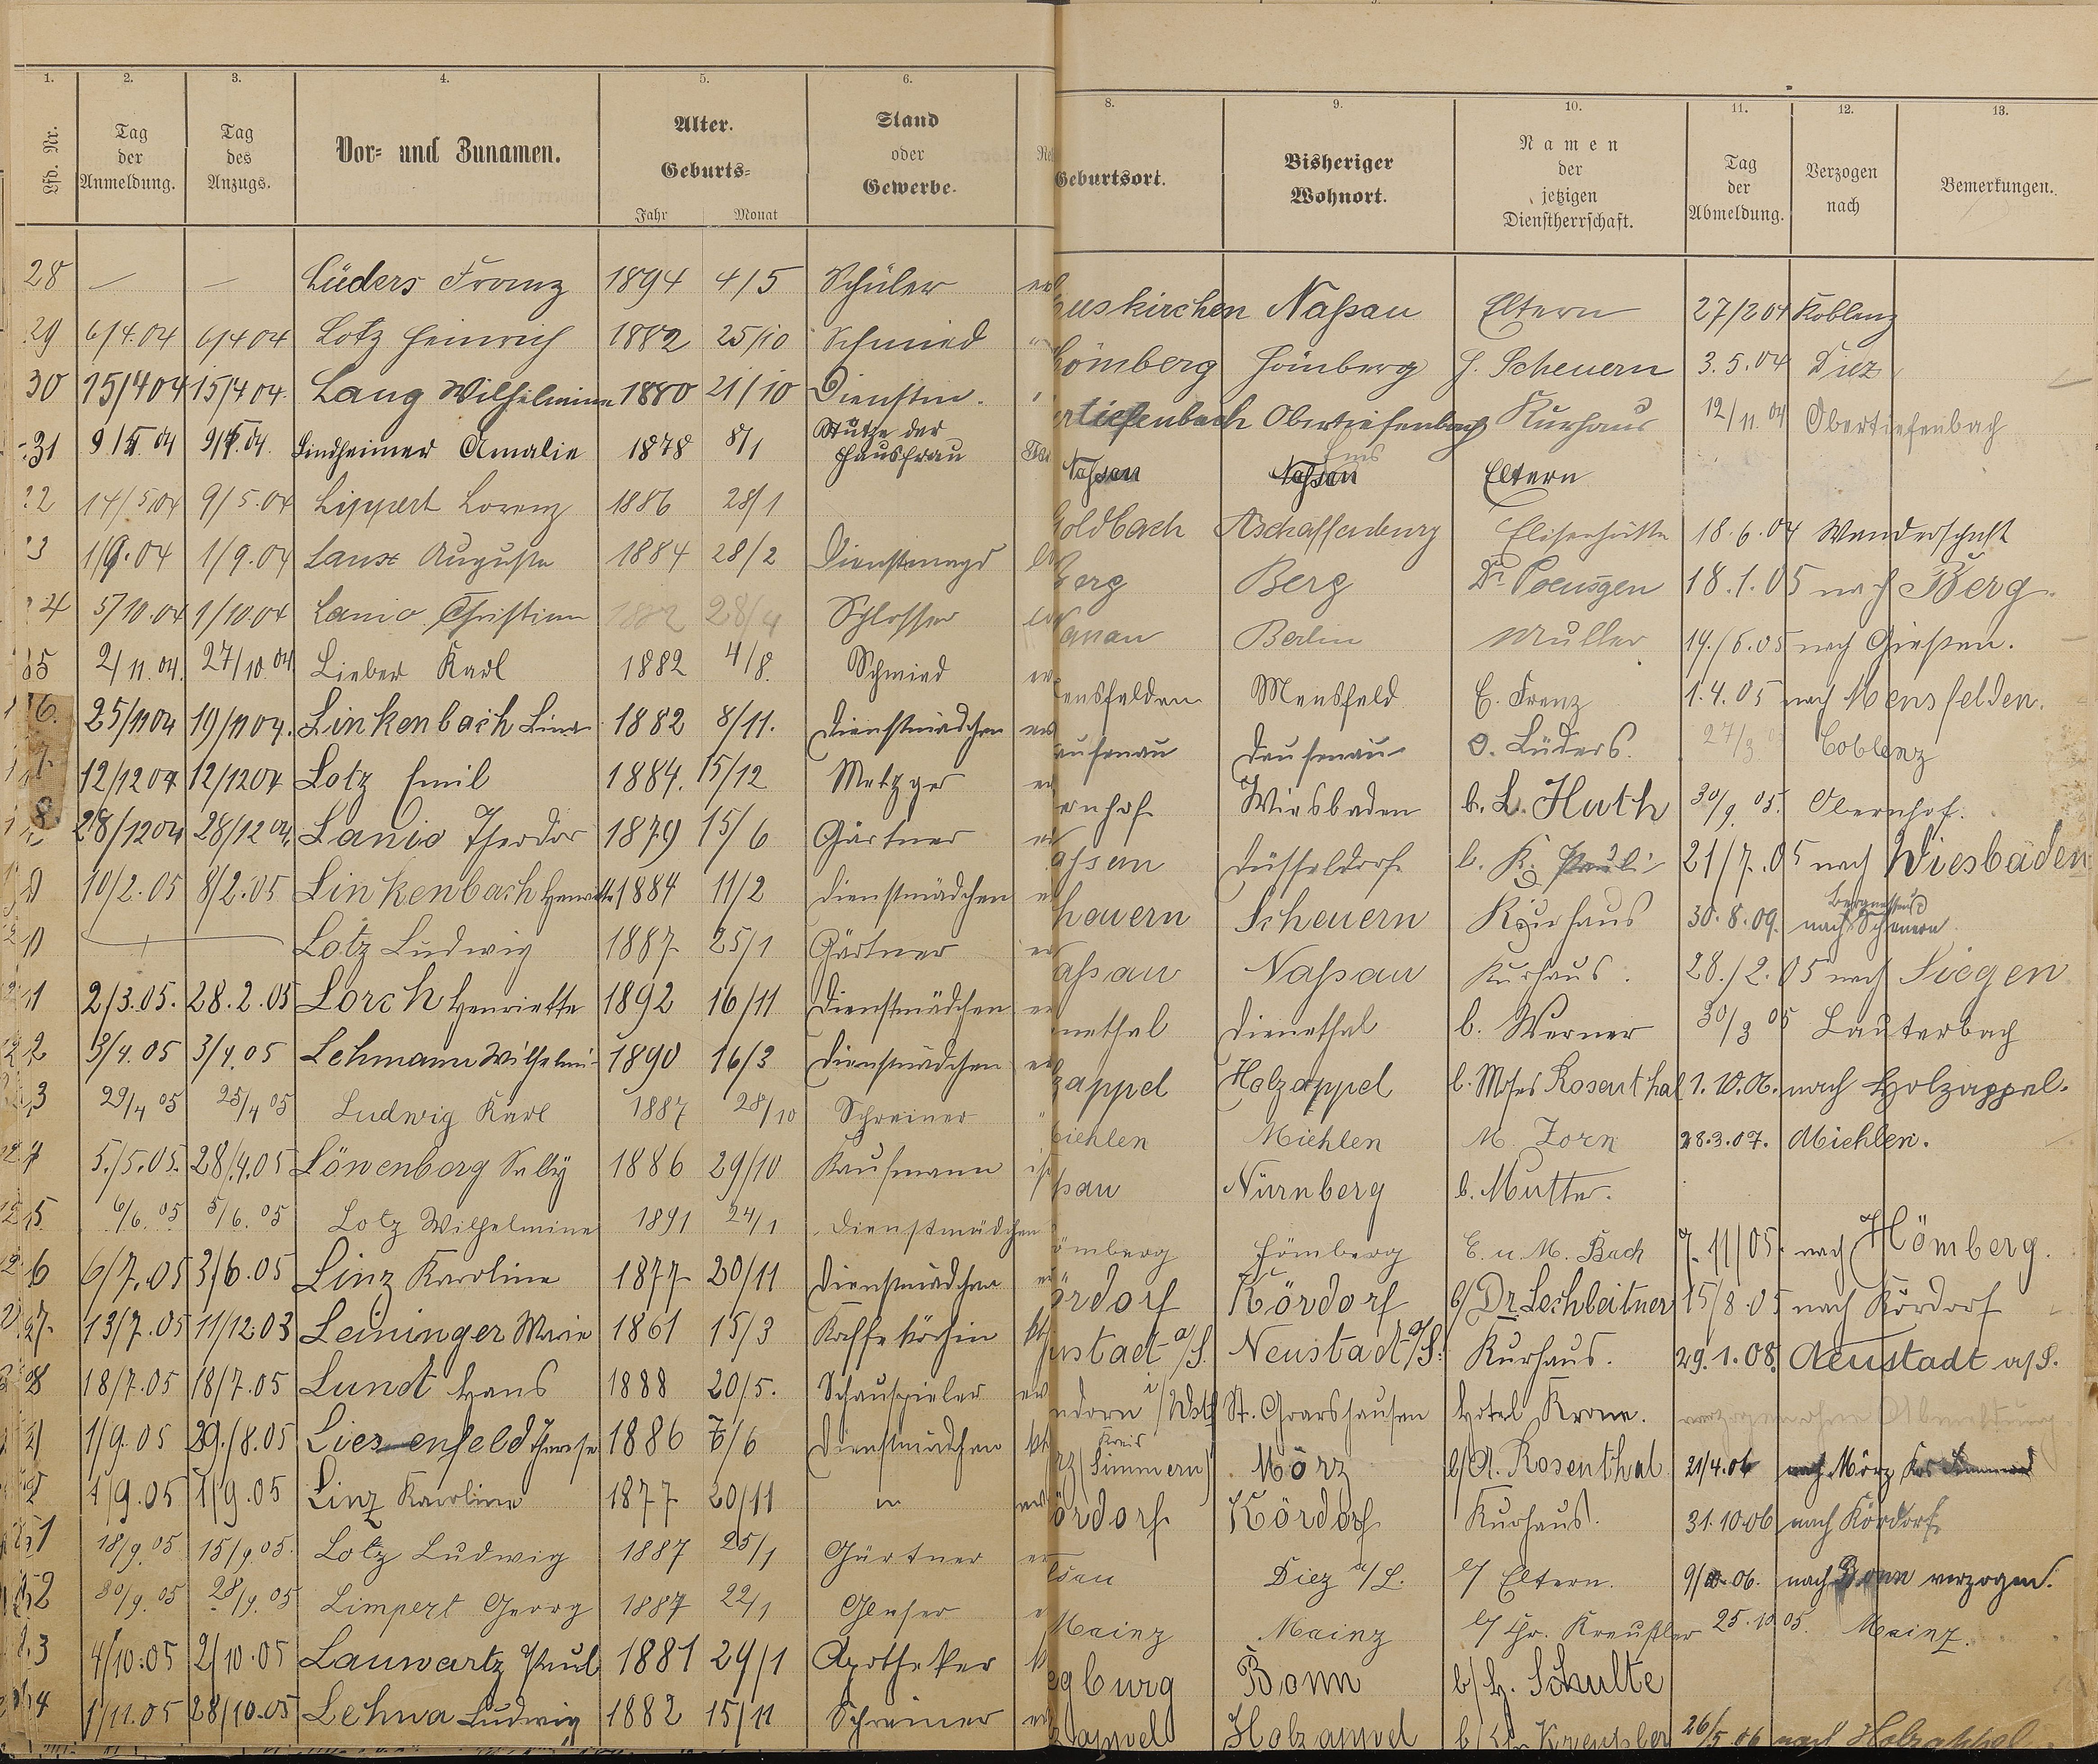 1. 2. 3. 4. 5. 6. 8. 9. 10. 11. 12. 13.
Lfd. Nr. | Tag der Anmeldung. | Tag des Anzugs. | Vor- und Zunamen. | Alter. Geburts- Jahr Monat | Stand oder Gewerbe. | Geburtsort. | Bisheriger Wohnort. | Namen der jetzigen Dienstherrschaft. | Tag der Abmeldung. | Verzogen nach | Bemerkungen.
28 — — Lüders Franz 1894 4/5 Schüler | uskirchen Naßau Eltern 27/2 04 Koblenz
29 6/4.04 6/4 04 Lotz Heinrich 1882 25/10 Schmied | Hömberg Hömberg H. Scheuern 3.5.04 Diez
30 15/4 04 15/4 04. Lang Wilhelmine 1880 21/10 Dienstm. | ertiefenbach Obertiefenbach Kurhaus 12/11 04 Obertiefenbach
31 9/5 04 9/5 04. Lindheimer Amalie 1878 8/1 Stütze der Hausfrau | Naßau Naßau Ems Eltern
2 14/5 04 9/5.04 Lippert Lorenz 1886 28/1 | Goldbach Aschaffenburg Elisenhütte 18.6.04 Wanderschaft
3 1/9.04 1/9.04 Laux Auguste 1884 28/2 Dienstmagd | Berg Berg Dr. Poensgen 18.1.05 nach Berg.
4 5/10.04 1/10.04 Lanio Christian 1882 28/4 Schlosser | anau Berlin Müller 14./6.05 nach Gießen.
35 2/11.04. 27/10 04 Lieber Karl 1882 4/8. Schmied | ensfelden Mensfeld E. Frenz 1.4.05 nach Mensfelden.
6. 25/11 04 19/11 04. Linkenbach Lina 1882 8/11. Dienstmädchen | ausenau Dausenau O. Lüders. 27/3 Coblenz
7. 12/12 04 12/12 04 Lotz Emil 1884. 15/12 Metzger | ernhof Wiesbaden b. L. Huth 30/9 05. Obernhof.
8. 28/12 04 28/12 04. Lanio Theodor 1879 15/6 Gärtner | aßau Düsseldorf b. K. Pauli 21/7.05 nach Wiesbaden
9 10/2.05 8/2.05 Linkenbach Henriette 1884 11/2 Dienstmädchen | heuern Scheuern Kurhaus 30.8.09. nach Bergnassau Scheuern
Lotz Ludwig 1887 25/1 Gärtner | aßau Naßau Kurhaus. 28./2.05 nach Siegen
1 2/3.05. 28.2.05 Lorch Henriette 1892 16/11 Dienstmädchen | nethal Dienethal b. Werner 30/3 05 Lauterbach
2 3/4.05 3/4.05 Lehmann Wilhelmi- 1890 16/3 Dienstmädchen | zappel Holzappel b. Moses Rosenthal 1.10.06. nach Holzappel.
3 29/4 05 25/4 05 Ludwig Karl 1887 28/10 Schreiner " | iehlen Miehlen M. Zorn 28.3.07. Miehlen.
4 5./5.05. 28/4.05 Löwenberg Sally 1886 29/10 Kaufmann | ßau Nürnberg b. Mutter.
5 6/6.05 5/6.05 Lotz Wilhelmine 1891 24/1 Dienstmädchen | ömberg Hömberg E. u. M. Bach 7.11/05. nach Hömberg.
6 6/7.05 3/6.05 Linz Karoline 1877 20/11 Dienstmädchen | ördorf Kördorf b/ Dr. Lechleitner 15/8.05 nach Kördorf
27. 13/7.05 11/12.03 Leininger Marie 1861 15/3 Kaffeköchin | ustadt a/S. Neustadt a/S. Kurhaus. 29.1.08. Neustadt a/S.
8 18/7.05 18/7.05 Lundt Hans 1888 20/5. Schauspieler | ndorn i/Wstf St. Goarshausen Hotel Krone. verzogen ohne Abmeldung
1/9.05 29./8.05 Liesenfeld Therese 1886 6/6 Dienstmädchen | rz (Kreis Simmern) Mörz b/ A. Rosenthal 21/4.06 nach Mörz Krs Simmern
1/9.05 1/9.05 Linz Karoline 1877 20/11 " | ördorf Kördorf Kurhaus. 31.10.06 nach Kördorf
1 18/9.05 15/9.05. Lotz Ludwig 1887 25/1 Gärtner | Diez a/L. b/ Eltern. nach Bonn verzogen.
2 30/9.05 28/9.05 Limpert Georg 1887 22/1 Glaser | Mainz Mainz b/ Chr. Kreußler 25.10 05. Mainz.
3 4/10.05 2/10.05 Lauwartz Paul 1881 29/1 Apotheker | egburg Bonn b/ H. Schulte
4 1/11.05 28/10.05 Lehna Ludwig 1882 15/11 Schreiner | zappel Holzappel b/ Chr Kreußler 26/5.06 nach Holzappel